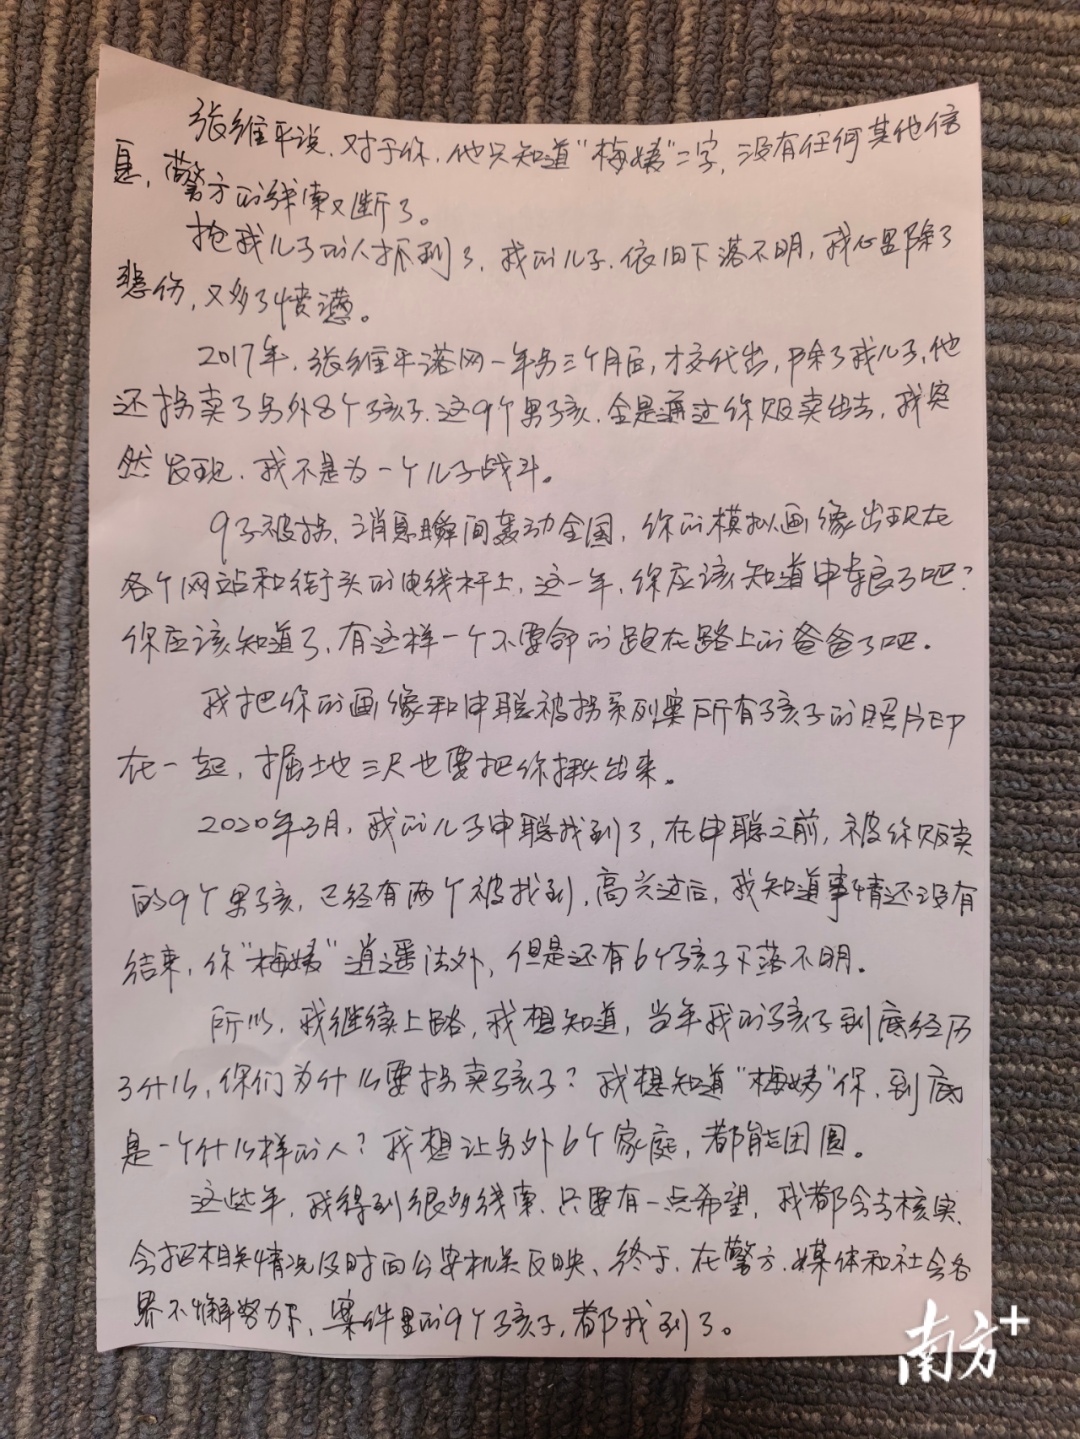 张维平说，对于你，他只知道“梅姨”二字，没有任何其他信
息，警方的线索又断了。
抢我儿子的人抓到了，我的儿子，依旧下落不明，我心里除了
悲伤，又多了愤懑。
2017年，张维平落网一年另三个月后，才交代出，除了我儿子，他
还拐卖了另外8个孩子，这9个男孩，全是通过你贩卖出去，我突
然发现，我不是为一个儿子战斗。
9子被拐，消息瞬间轰动全国，你的模拟画像出现在
各个网站和街头的电线杆上，这一年，你应该知道申军良了吧？
你应该知道了，有这样一个不要命的跑在路上的爸爸了吧。
我把你的画像和申聪被拐系列案所有孩子的照片印
在一起，掘地三尺也要把你揪出来。
2020年3月，我的儿子申聪找到了，在申聪之前，被你贩卖
的9个男孩，已经有两个被找到，高兴过后，我知道事情还没有
结束，你“梅姨”逍遥法外，但是还有6个孩子下落不明。
所以，我继续上路，我想知道，当年我的孩子到底经历
了什么，你们为什么要拐卖孩子？我想知道“梅姨”你，到底
是一个什么样的人？我想让另外6个家庭，都能团圆。
这些年，我得到很多线索，只要有一点希望，我都会去核实，
会把相关情况及时向公安机关反映、终于，在警方、媒体和社会各
界不懈努力下，案件里的9个孩子，都找到了。
南方+